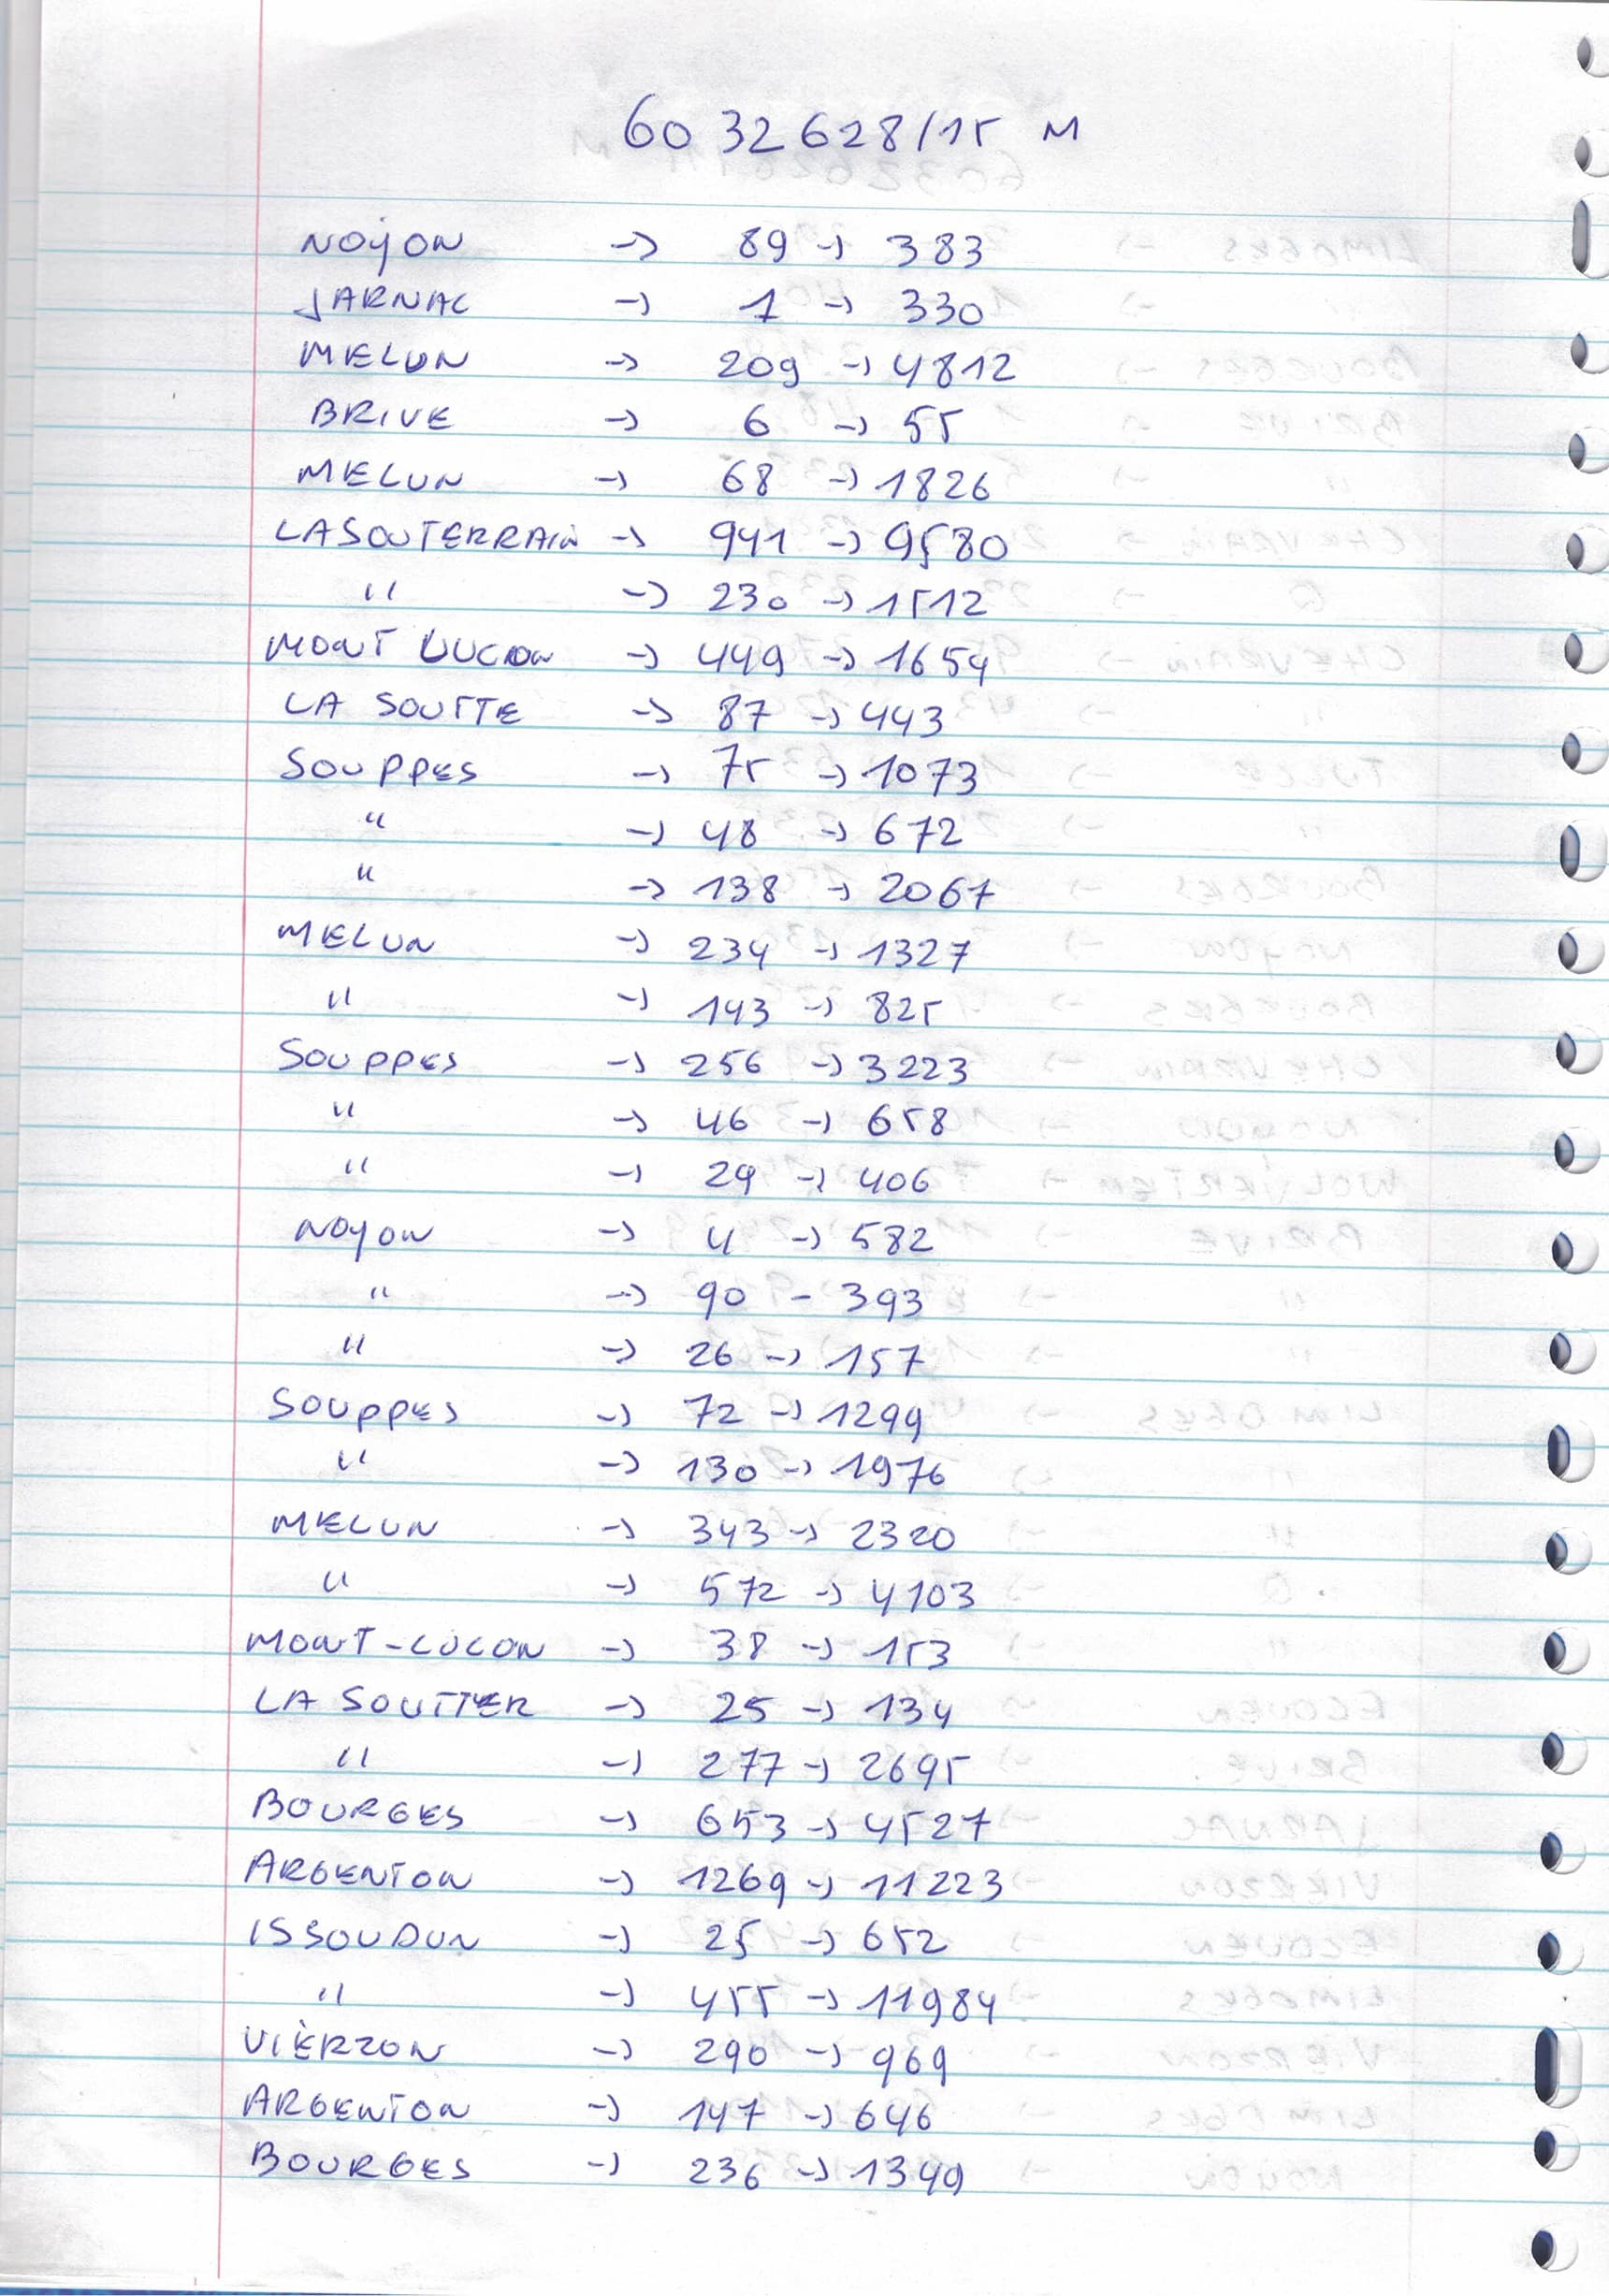 6032628/15 M
NOYON -> 89 -> 383
JARNAC -> 1 -> 330
MELUN -> 209 -> 4812
BRIVE -> 6 -> 55
MELUN -> 68 -> 1826
LASOUTERRAIN -> 941 -> 9580
" -> 230 -> 1512
MONT LUCON -> 449 -> 1654
LA SOUTTE -> 87 -> 443
SOUPPES -> 75 -> 1073
" -> 48 -> 672
" -> 138 -> 2067
MELUN -> 234 -> 1327
" -> 143 -> 825
SOUPPES -> 256 -> 3223
" -> 46 -> 658
" -> 29 -> 406
NOYON -> 4 -> 582
" -> 90 - 393
" -> 26 -> 157
SOUPPES -> 72 -> 1299
" -> 130 -> 1976
MELUN -> 343 -> 2320
" -> 572 -> 4103
MONT-LUCON -> 38 -> 153
LA SOUTTER -> 25 -> 134
" -> 277 -> 2695
BOURGES -> 653 -> 4527
ARGENTON -> 1269 -> 11223
ISSOUDUN -> 25 -> 652
" -> 455 -> 11984
VIERZON -> 290 -> 969
ARGENTON -> 147 -> 646
BOURGES -> 236 -> 1349